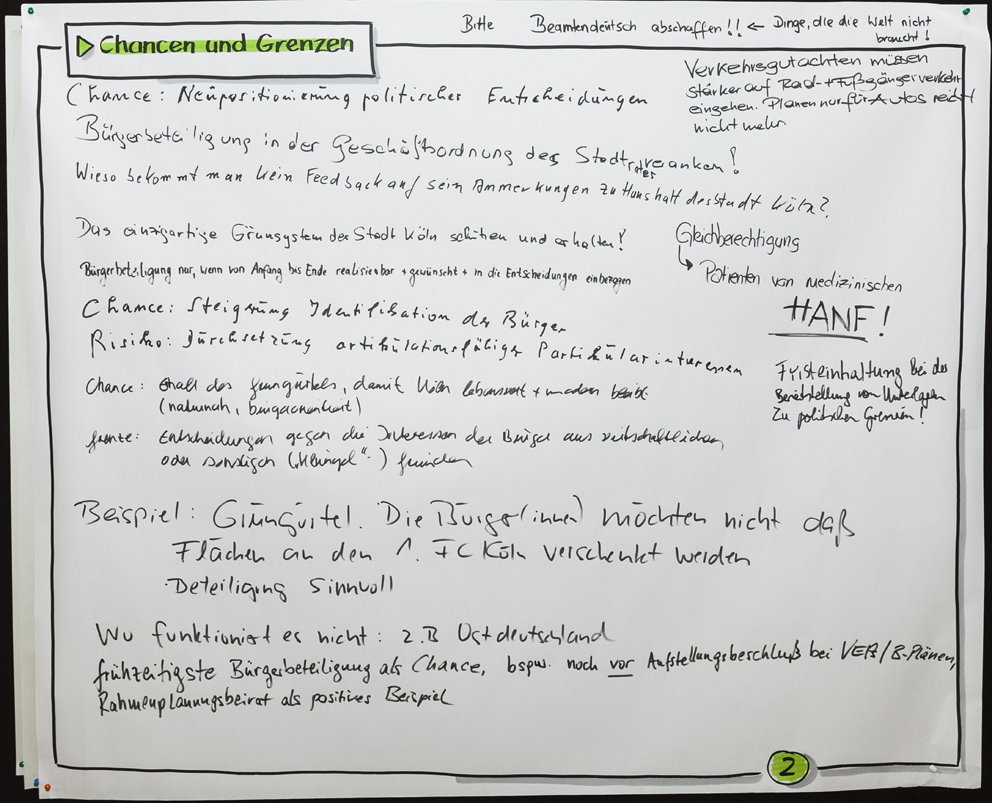 Chancen und Grenzen
Bitte Beamtendeutsch abschaffen!! ← Dinge, die die Welt nicht
braucht!
Verkehrsgutachten müssen
stärker auf Rad- + Fußgängerverkehr
eingehen. Planen nur für Autos reicht
nicht mehr
Chance: Neupositionierung politischer Entscheidungen
Bürgerbeteiligung in der Geschäftsordnung des Stadtrates verankern!
Wieso bekommt man kein Feedback auf sein Ammerkungen zu Haushalt der Stadt Köln?
Das einzigartige Grünsystem der Stadt Köln schützen und erhalten!
Gleichberechtigung
↳ Patienten von medizinischen
HANF!
Bürgerbeteiligung nur, wenn von Anfang bis Ende realisierbar + gewünscht + in die Entscheidungen einbezogen
Chance: Steigerung Identifikation der Bürger
Risiko: Durchsetzung artikulationsfähiger Partikularinteressen
Fristeinhaltung bei der
Bereitstellung von Unterlagen
zu politischen Gremien!
Chance: Erhalt des Grüngürtels, damit Köln lebenswert + modern bleibt.
(naturnah,
Grenze: Entscheidungen gegen die Interessen der Bürger aus wirtschaftlichen
oder sonstigen („Klüngel“) Gründen
Beispiel: Grüngürtel. Die Bürger(innen) möchten nicht daß
Flächen an den 1. FC Köln verschenkt werden
Beteiligung Sinnvoll
Wo funktioniert es nicht: z.B Ostdeutschland
frühzeitigste Bürgerbeteiligung als Chance, bspw. noch vor Aufstellungsbeschluß bei VEP/B-Plänen,
Rahmenplanungsbeirat als positives Beispiel
2